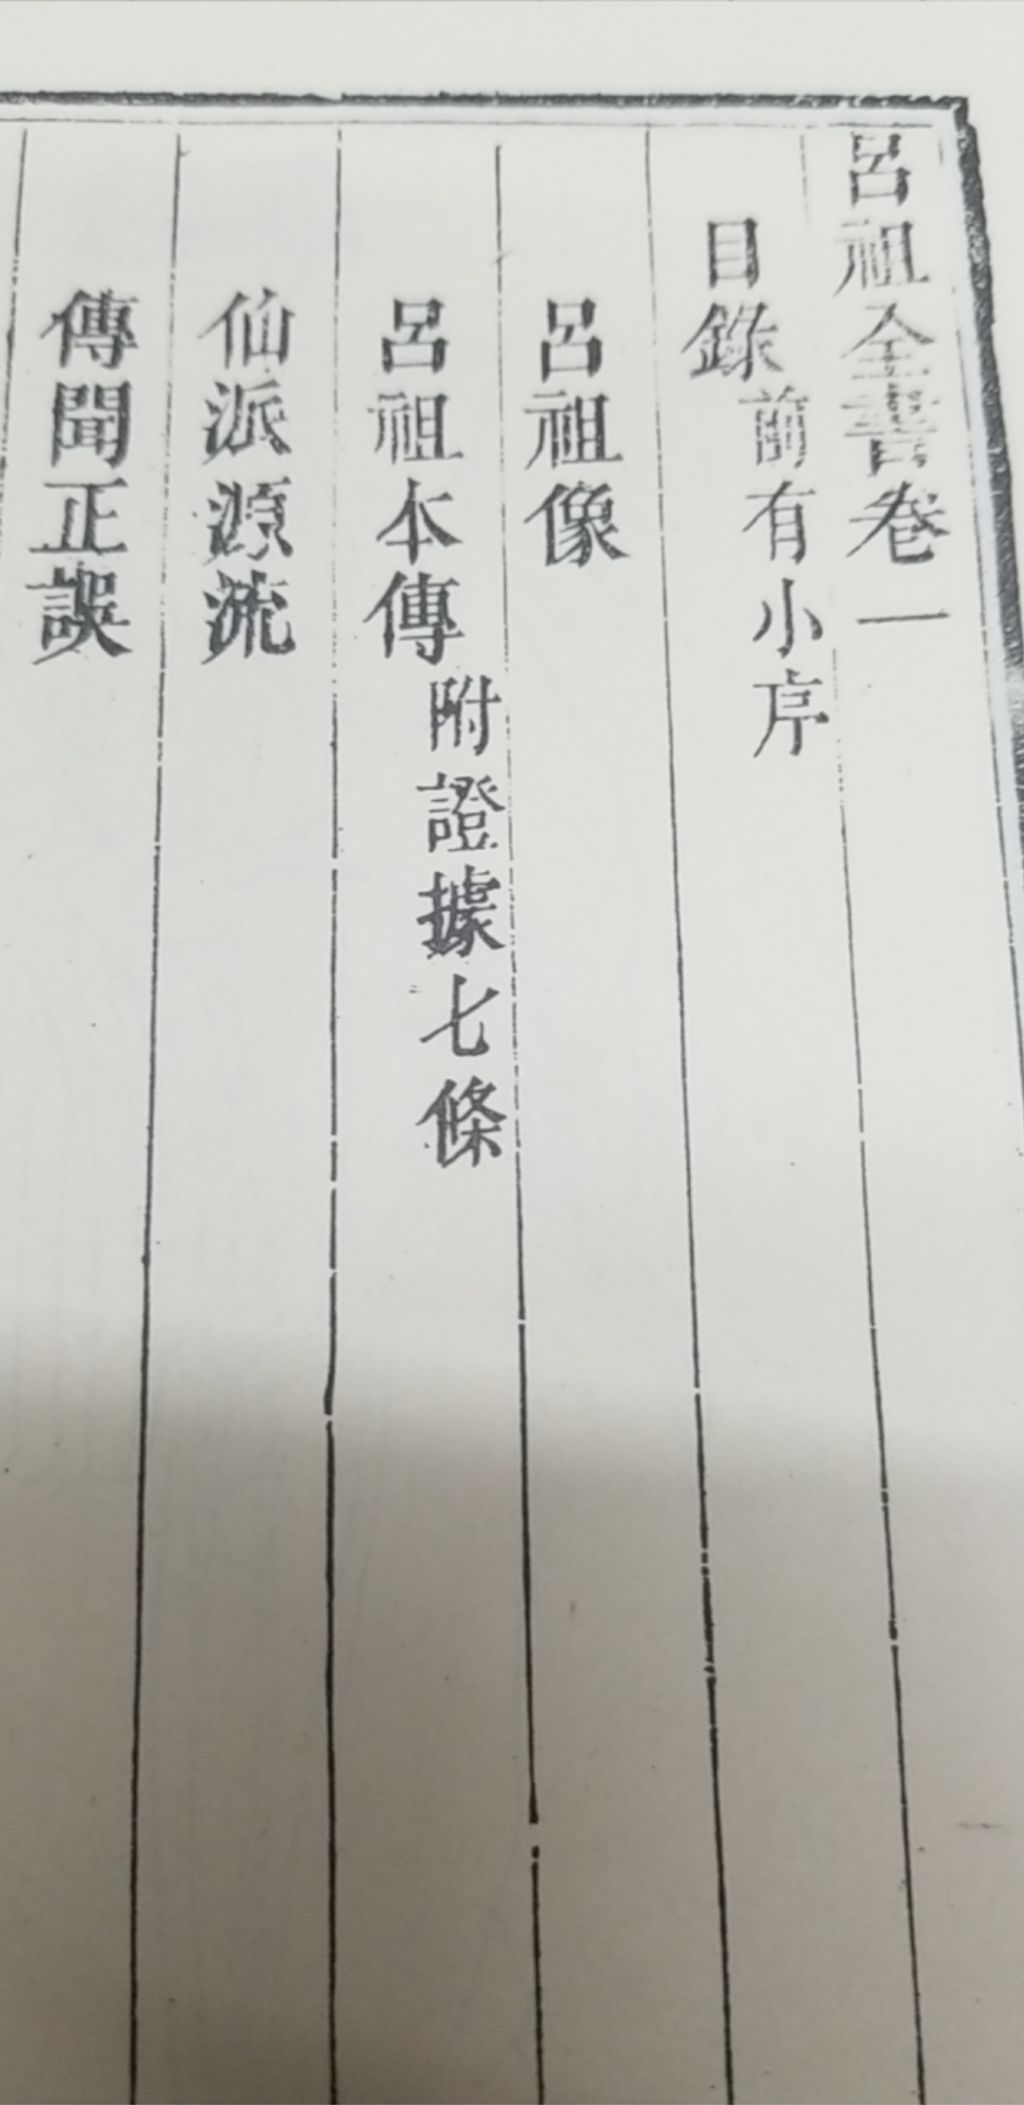 呂祖全書卷一
目錄前有小序
呂祖像
呂祖本傳附證據七條
仙派源流
傳聞正誤